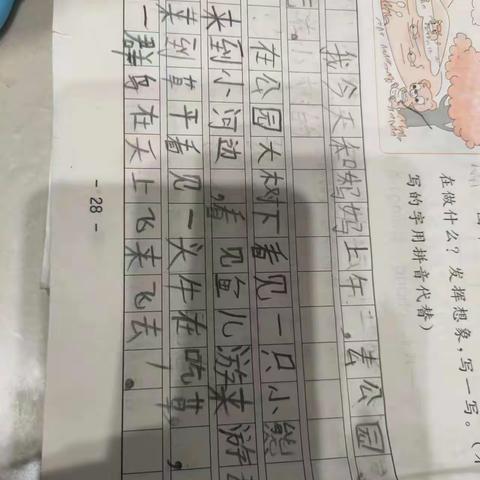 在做什么？发挥想象，写一写。（
写的字用拼音代替）
我今天和妈妈上午去公园
。
在公园大树下看见一只小熊
来到小河边，看见鱼儿游来游
来到草平看见一头牛在吃草，
一群鸟在天上飞来飞去。
- 28 -